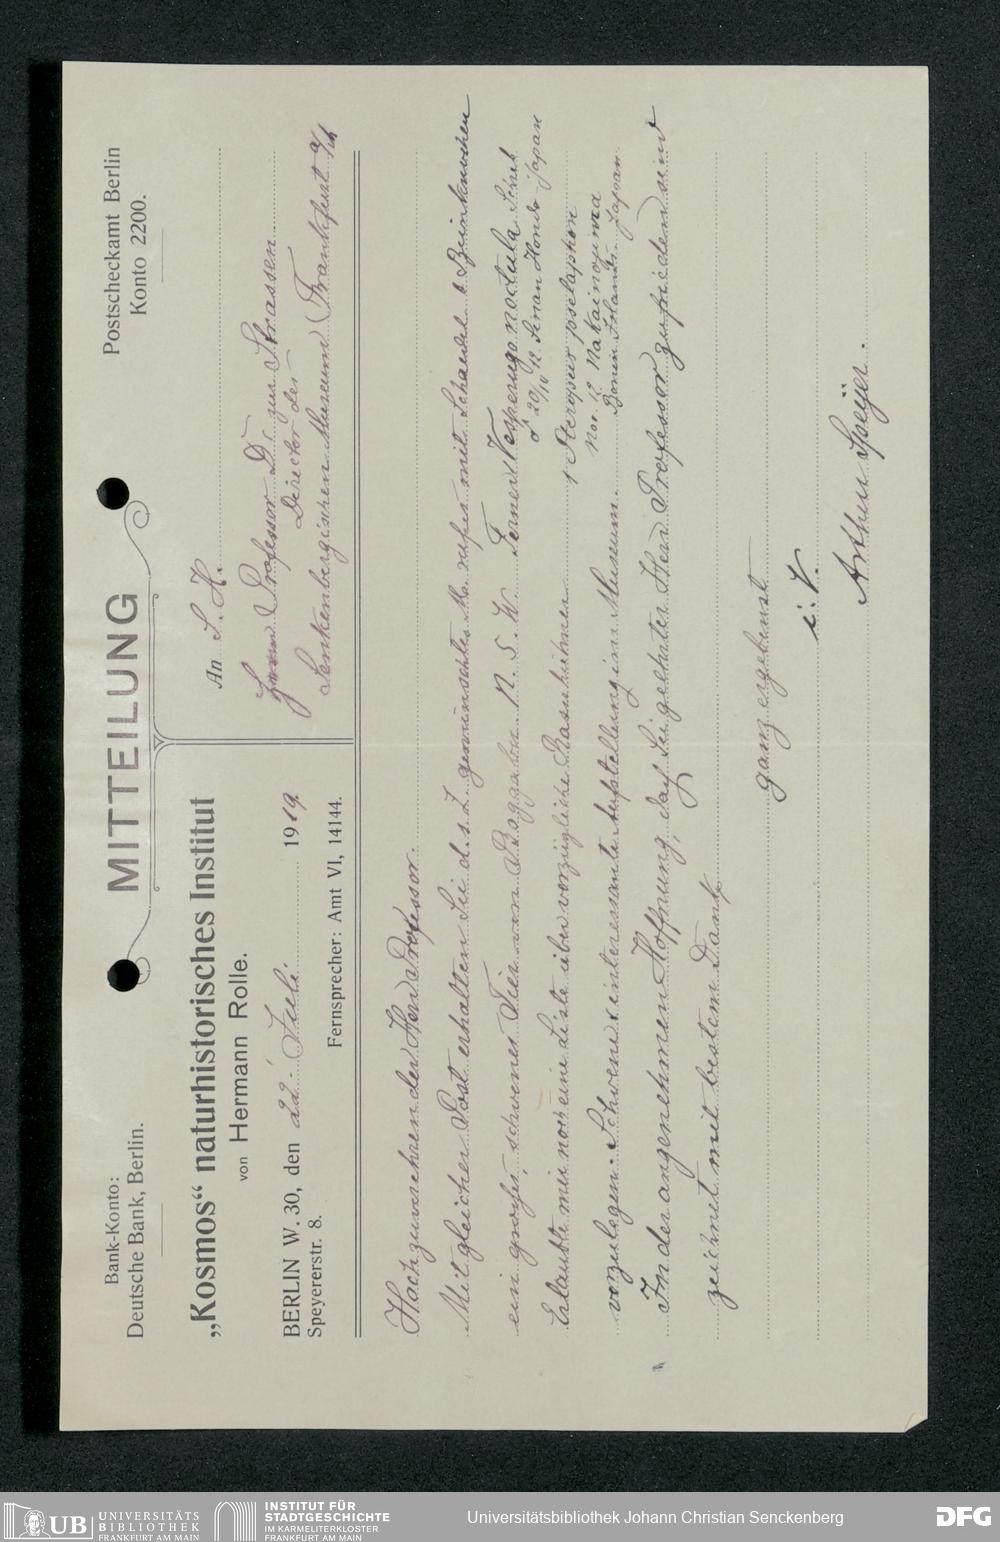 Bank-Konto:
Deutsche Bank, Berlin.
MITTEILUNG
Postscheckamt Berlin
Konto 2200.
„Kosmos“ naturhistorisches Institut
von Hermann Rolle.
BERLIN W. 30, den 22. Juli 1919
Speyererstr. 8.
Fernsprecher: Amt VI, 14144.
An S. H.
Herrn Professor Dr. zur Strassen
Director des
Senkenbergischen Museum Frankfurt a/M
Hochzuverehrender Herr Professor.
Mit gleicher Post erhalten Sie d. s. Z. gewünschtes M. rufus mit Schaedel & Beinknochen
ein großes, schönes Tier von Boggabri N. S. W. Ferner Vesperugo noctula Schreb
♂ 20/IV 12. Hondo Japan
Erlaubte mir noch eine Liste über vorzügliche Rasuhühner
1 Pteropus pselaphon
Nov. 12 Nakainoshima
Bonin Islands Japan.
vorzulegen. Schöne & interessante Aufstellung im Museum.
In der angenehmen Hoffnung, daß Sie geehrter Herr Professor zufrieden sind
zeichnet mit bestem Dank
ganz ergebenst
i. V.
Arthur Speyer.
UB UNIVERSITÄTS
BIBLIOTHEK
FRANKFURT AM MAIN
INSTITUT FÜR
STADTGESCHICHTE
IM KARMELITERKLOSTER
FRANKFURT AM MAIN
Universitätsbibliothek Johann Christian Senckenberg
DFG